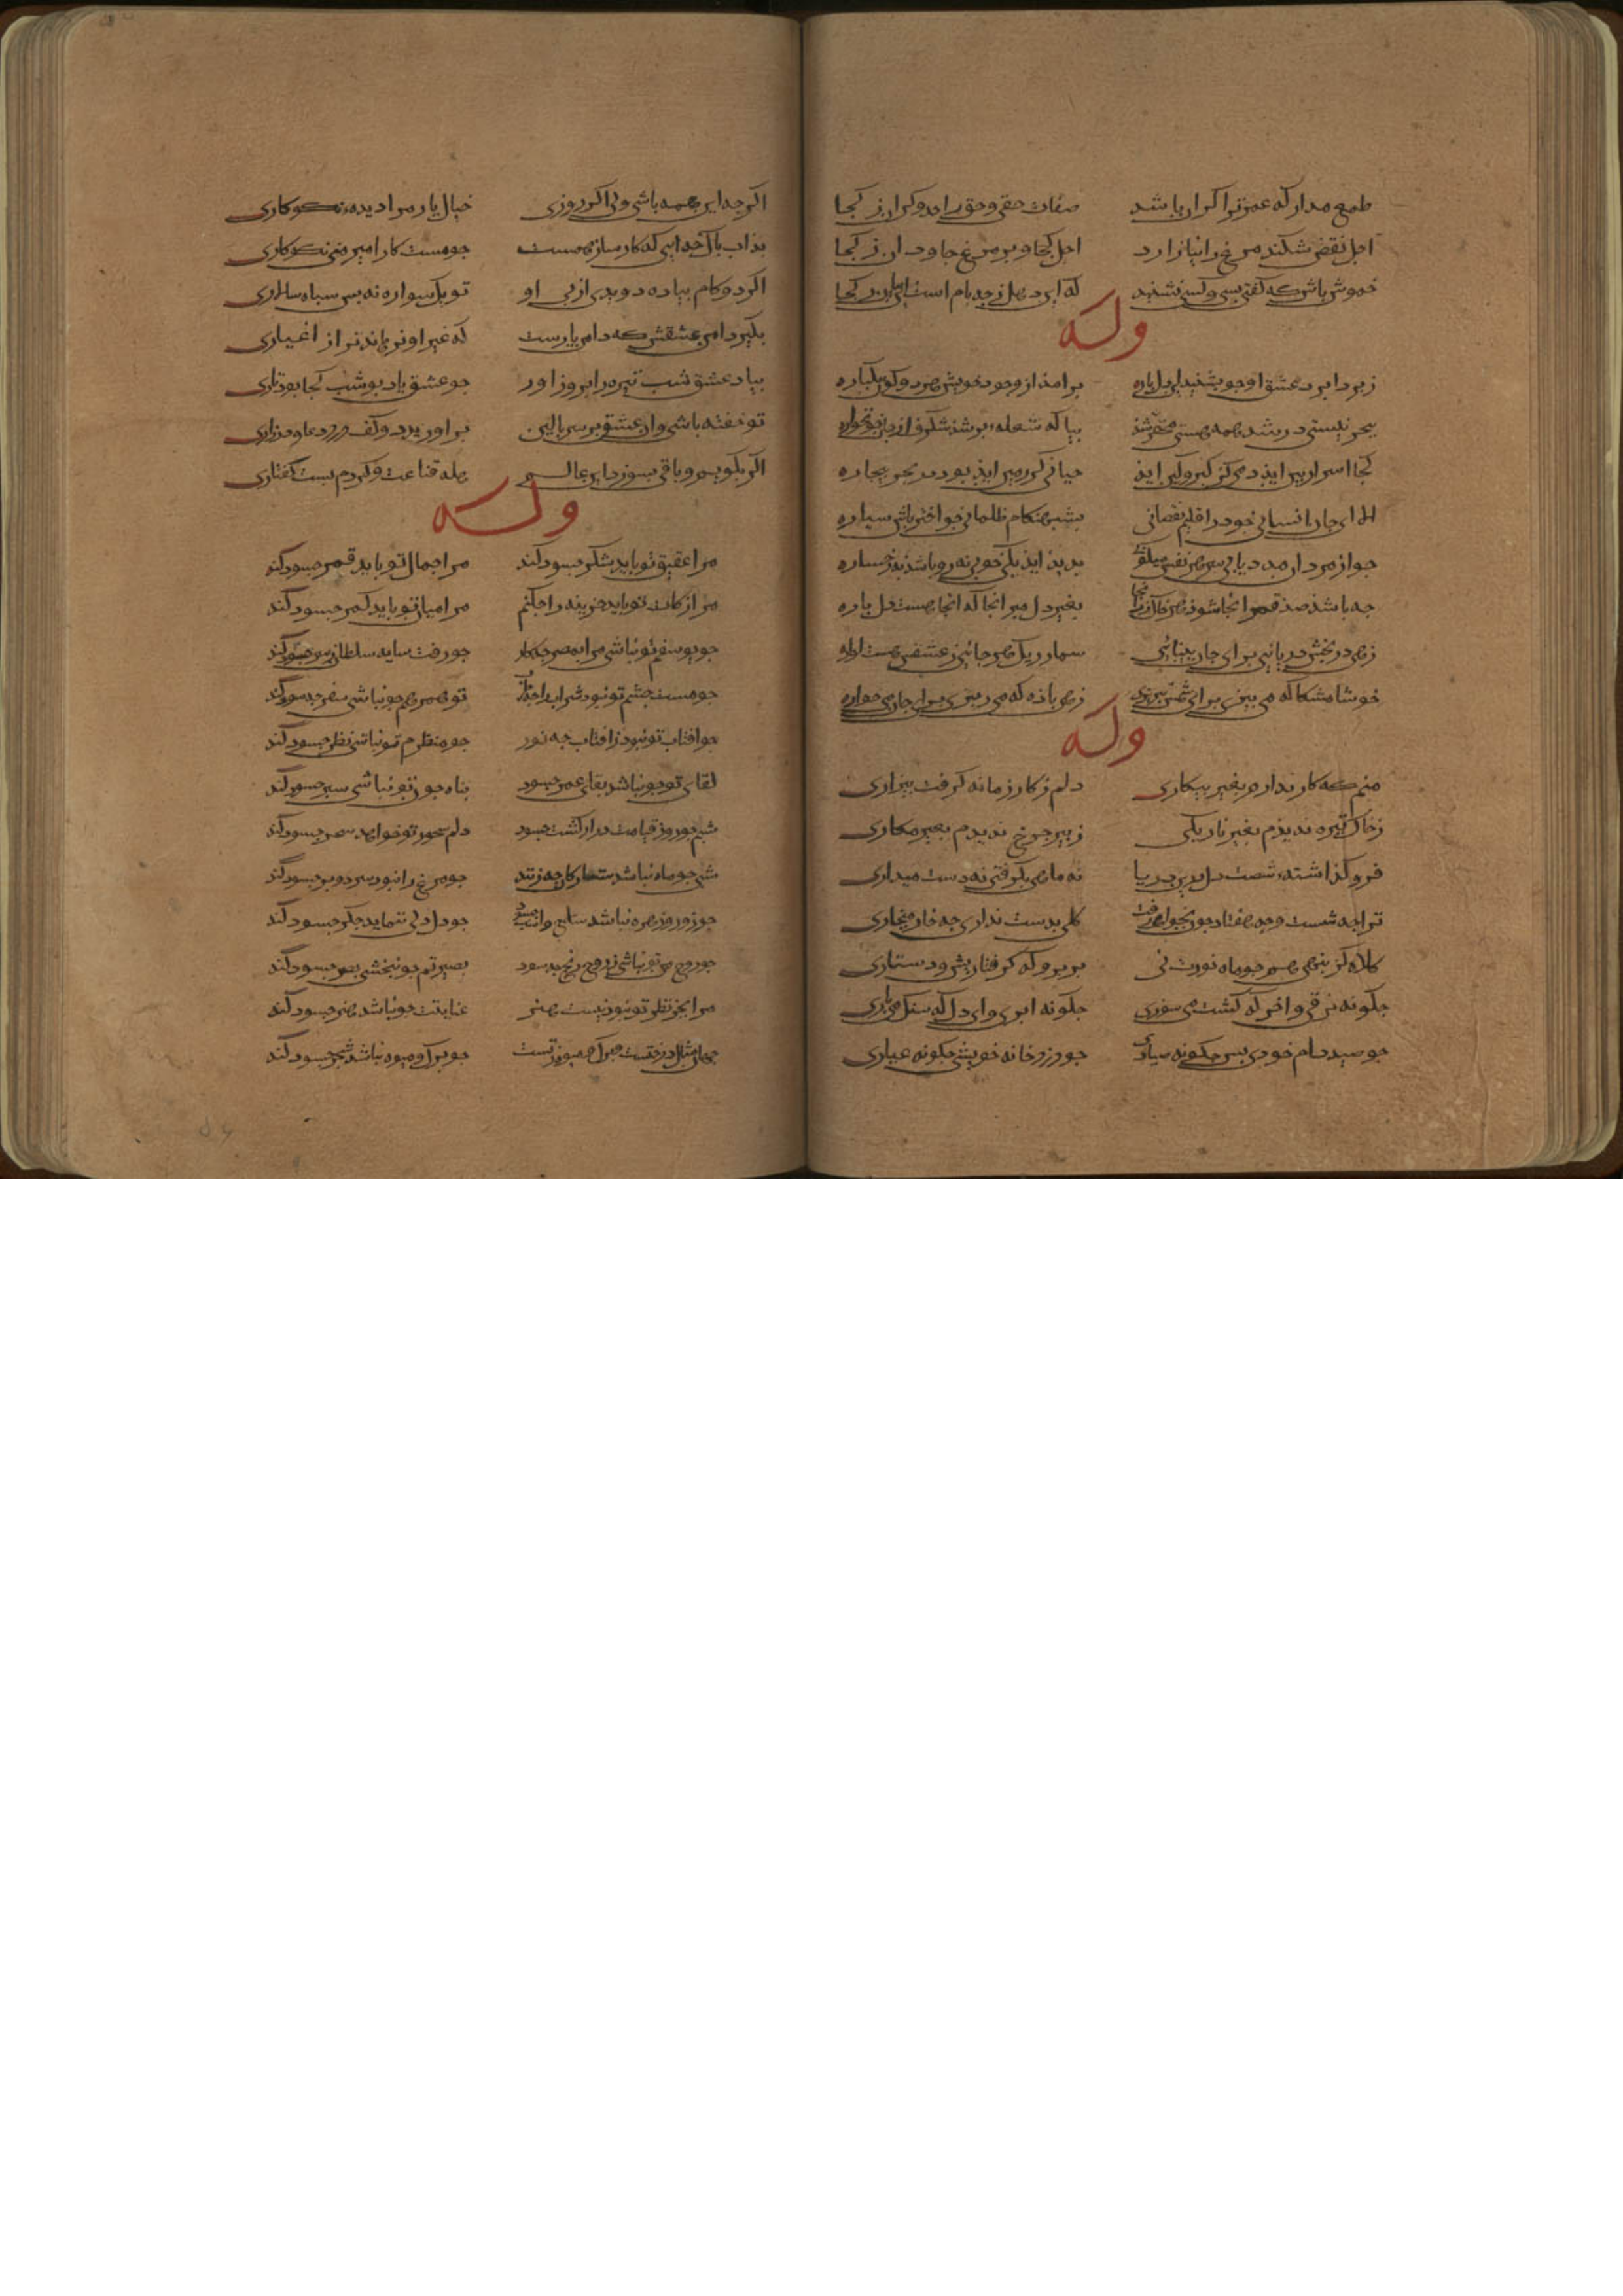 طمع مدار که عمر ترا کران باشد صفات حقی و حق را حد و کران ز کجا
اجل نقض شکند مرغ را نیازارد اجل کجا و پر مرغ جاودان ز کجا
خموش باش که گفتی بسی و کس نشنید که این دهل ز چه بام است این بیان ز کجا
وله
بر امذ از وجود خویش هر دو کون یکباره
ببحر نیستی در شد همه هستی بیا که شعله بر شد شکرف از
کجا اسرار بین ایذ دمی کز کبر و کین ایذ میانی کز زمین ایذ بود در بحر بیچاره
الا ای جان انسانی جو در اقلیم نقصانی بشب هنکام ظلمانی جو اختر باش سیاره
جو از مردان مدد یابی بدید ایذ یکی خوبی نه رو باشذ نه رخساره
جه باشذ صذ قمر انجا شوذ هر خاک زر انجا بغیر دل مبر انجا که انجا هست دل باره
زهی در بخش دریایی برای جان بینائی
خوشا مشکا که می بیزی برای شمس تبریزی زهی باذه که می ریزی برای جان می خواره
وله
منم که کار ندارم بغیر بیکاری دلم ز کار زمانه کرفت بیزاری
ز خاک تیره ندیذم بغیر تاریکی ز پیر جرخ ندیدم بغیر مکاری
فرو کذاشته شصت دل درین دریا نه ماهی بکرفتی نه دست میداری
ترا جه شست و جه هفتاد جون نخواهی کلی بدست نداری جه خار میخاری
کلاه کژ بنهی همجو ماه نورت نی برو برو که کرفتار ریش و دستاری
جکونه برقی و اخر که کشت می سوزی جکونه ابری و ای دل که سنک می باری
جو صید دام خودی بس جکونه صیادی جو دزد خانه خویشی جکونه عیاری
اکر جه این همه باشی ولی اکر روزی خیال یار مرا دیده نکوکاری
بذات باک خدایی که کارساز همست جو مست کار امیر منی نکوکاری
اکر دو کام بیاده دویدی از بی او تو یک سواره نه بس سباه سالاری
بکیر دامن عشقش که دامن یارست که غیر او نرهاند ترا از اغیاری
بیاد عشق شب تیره را بروز اور جو عشق یاد بود شب کجا بود تاری
تو خفته باشی وان عشق بر سر بالین بر اورید دو کف در دعا و در زاری
اکر بکویم و باقی بسوزد این عالم هله قناعت کردم بست کفتاری
وله
مرا عقیق تو باید شکر جسود کند مرا جمال تو باید قمر جسود کند
مرا زکات تو باید خزینه را جکنم مرا میان تو باید کمر جسود کند
جو یوسفم تو نباشی مرا بمصر جکار جو رفت سایه سلطان جسود کند
جو مست جشم تو نبود شراب را تو همرهم جو نباشی سفر جسود کند
جو افتاب تو نبود ز افتاب جه نور جو منظرم تو نباشی نظر جسود کند
لقای تو جو نباشد بقای عمر جسود بناه جون تو نباشی سبر جسود کند
شبم جو روز قیامت دراز کشت جسود دلم سحور تو خواهد سحر جسود کند
شبی جو ماه نباشد ستارکان جه زنند جو مرغ را نبود سر دو بر جسود کند
جو زور و زهره نباشد سلاح و اسب جسود جو دل دلی ننماید جکر جسود کند
جو روح من تو نباشی ز روح ریح جسود بصیرتم جو نبخشی بصر جسود کند
مرا بجز نظر تو نبود نیست هنر عنایتت جو نباشد هنر جسود کند
جهان مثال درختست برک و میوه ز تست جو برک و میوه نباشد شجر جسود کند